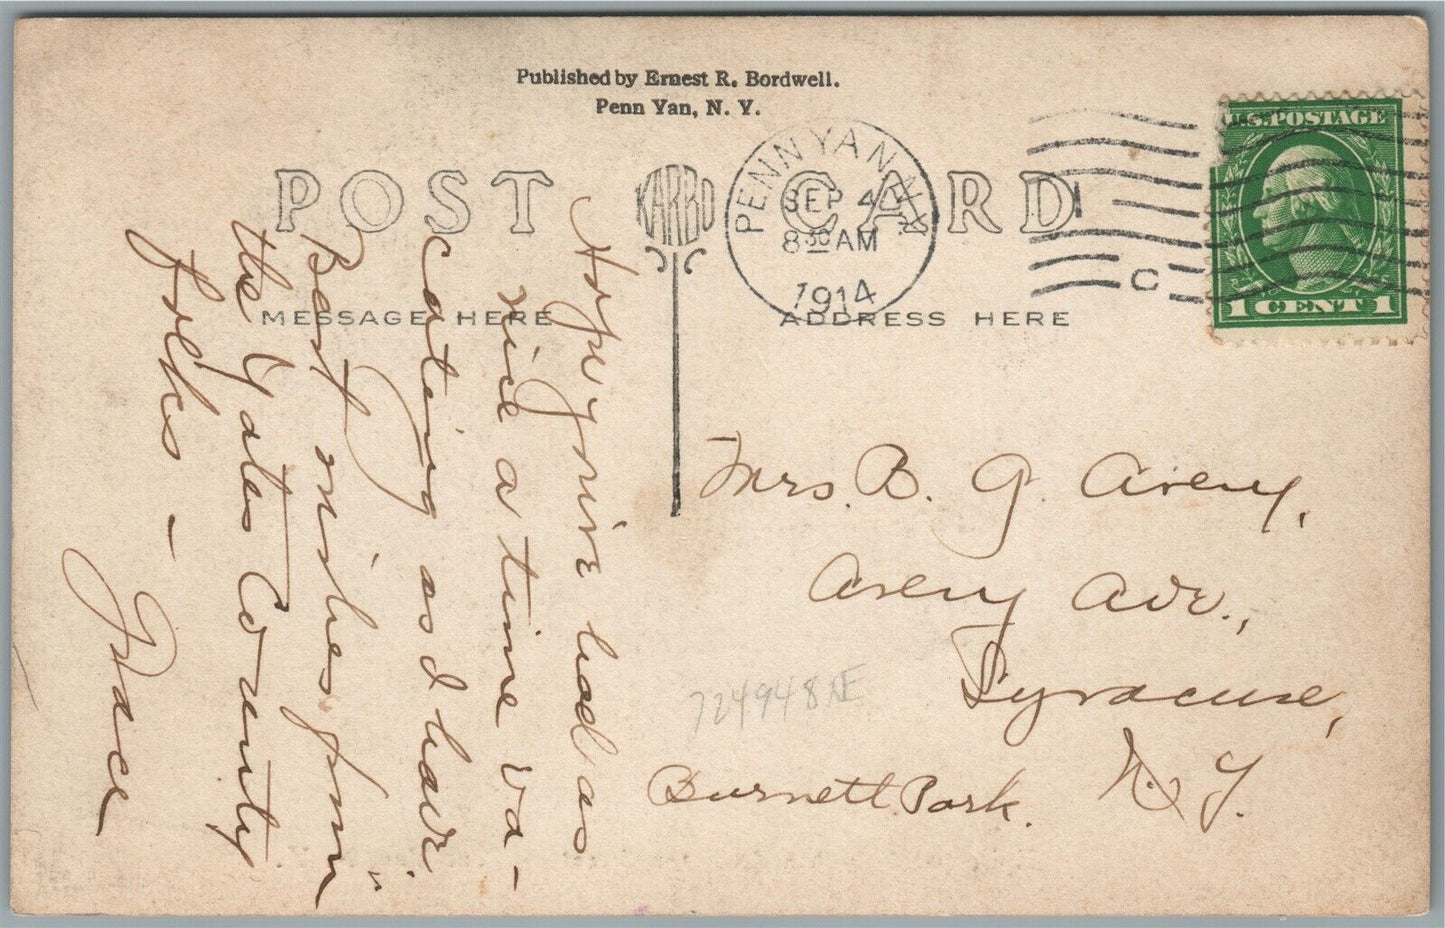 Published by Ernest R. Bordwell.
Penn Yan, N. Y.
POST CARD
KARBO
PENN YAN, N.Y.
SEP 4
8 30 AM
1914
C
U.S. POSTAGE
1 CENT 1
MESSAGE HERE
ADDRESS HERE
Hope you've had as
nice a time va-
cating as I have
Best wishes from
the Yates County
folks –
Grace
Mrs. B. G. Avery,
Avery Ave.,
Syracuse,
N. Y.
Burnett Park.
724948 NE